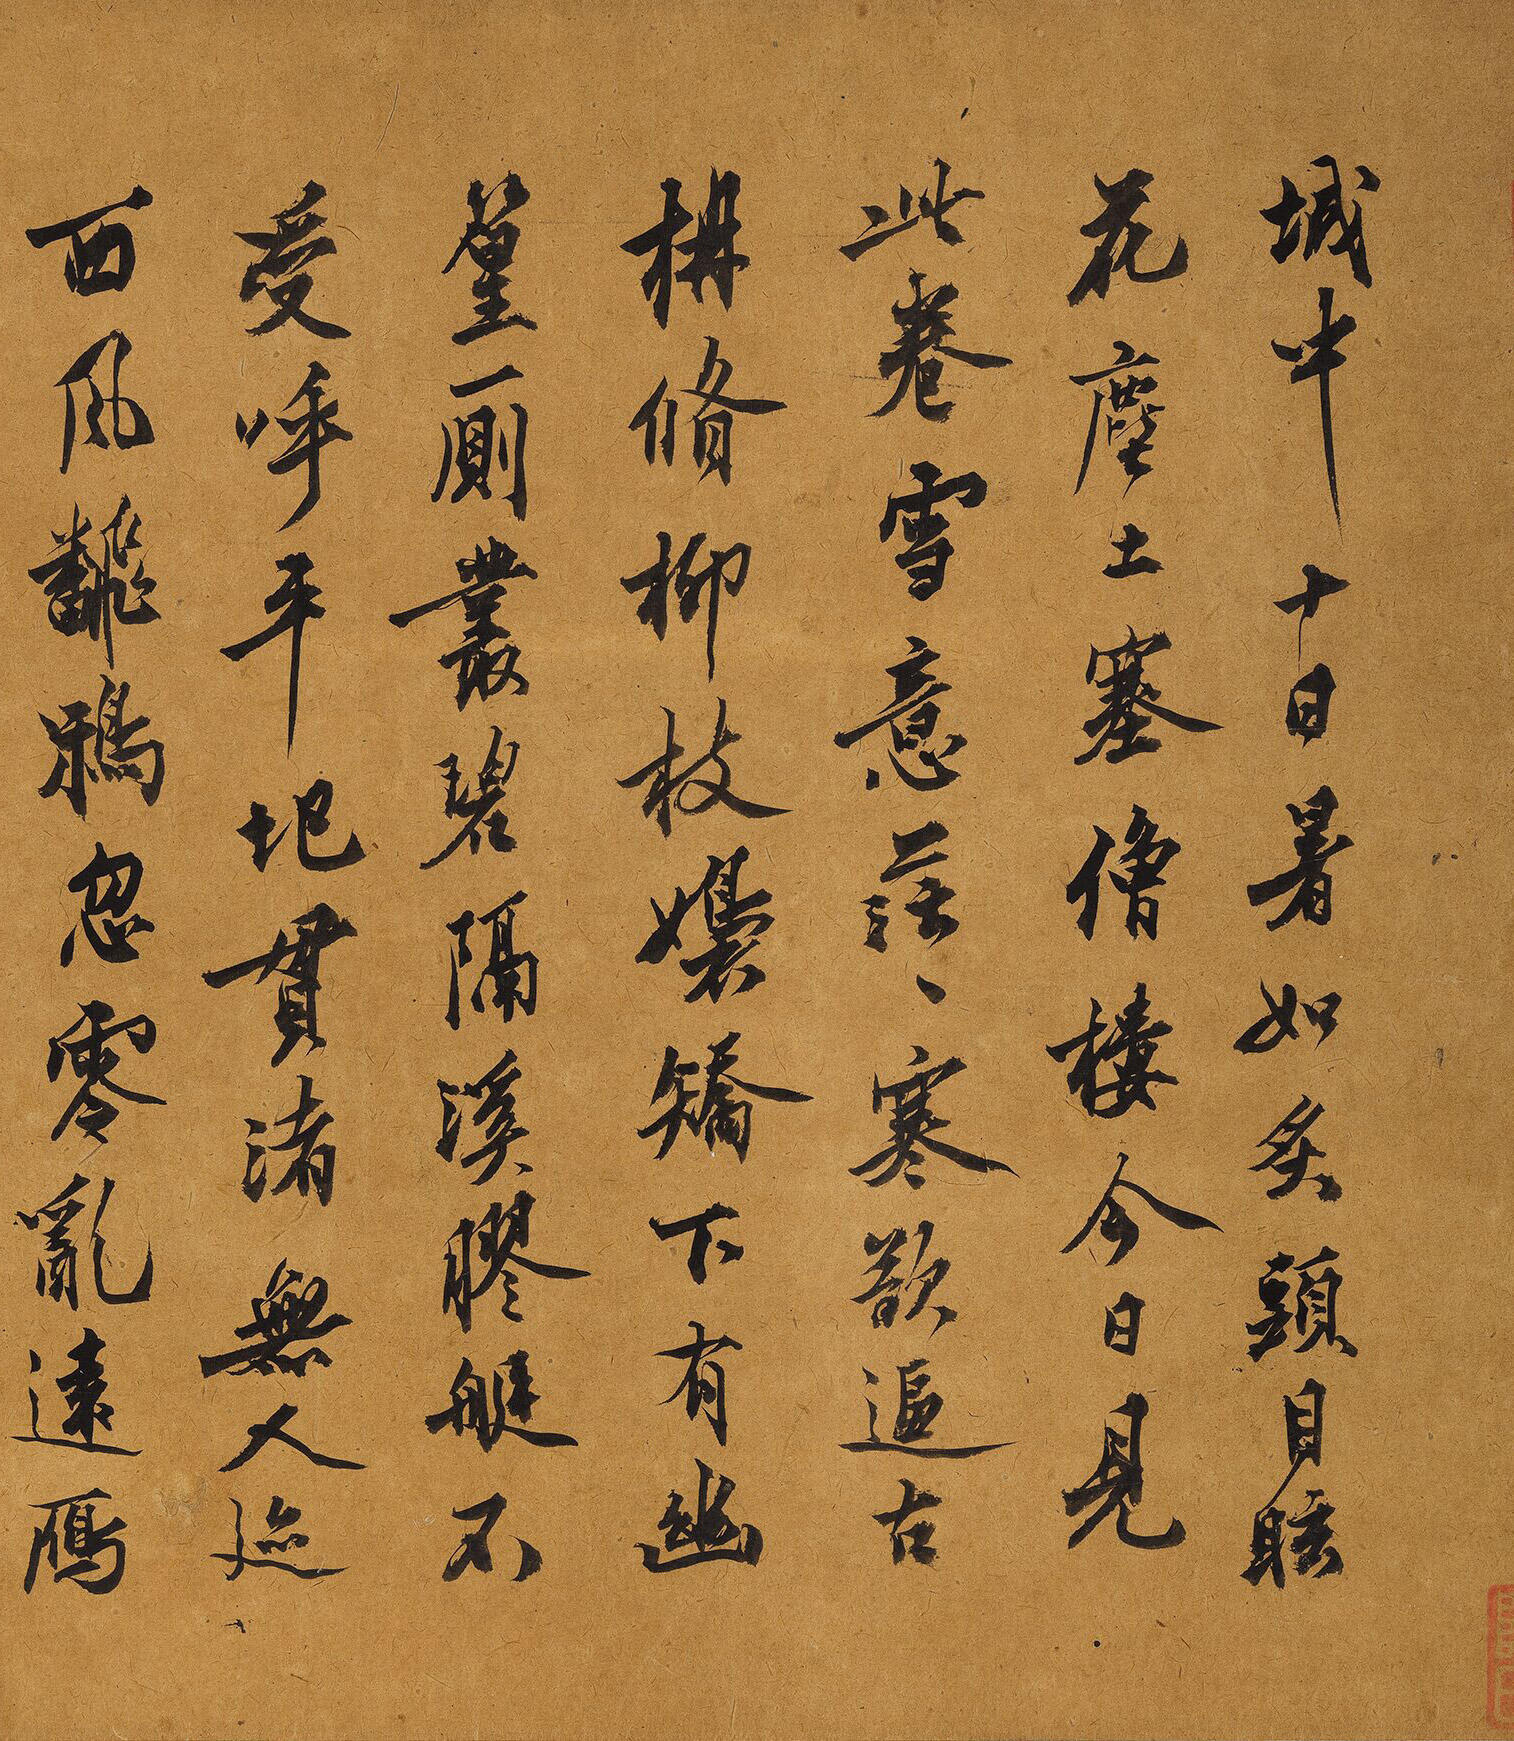 城中十日暑如炙頭目眩
花塵土塞僧樓今日見
此卷雪意茫、寒欲逼古
枏脩柳枝嬝矯下有幽
篁一劂叢碧隔溪膠艇不
受呼平地貫渚無人迹
西風飜鴉忽零亂遠鴈